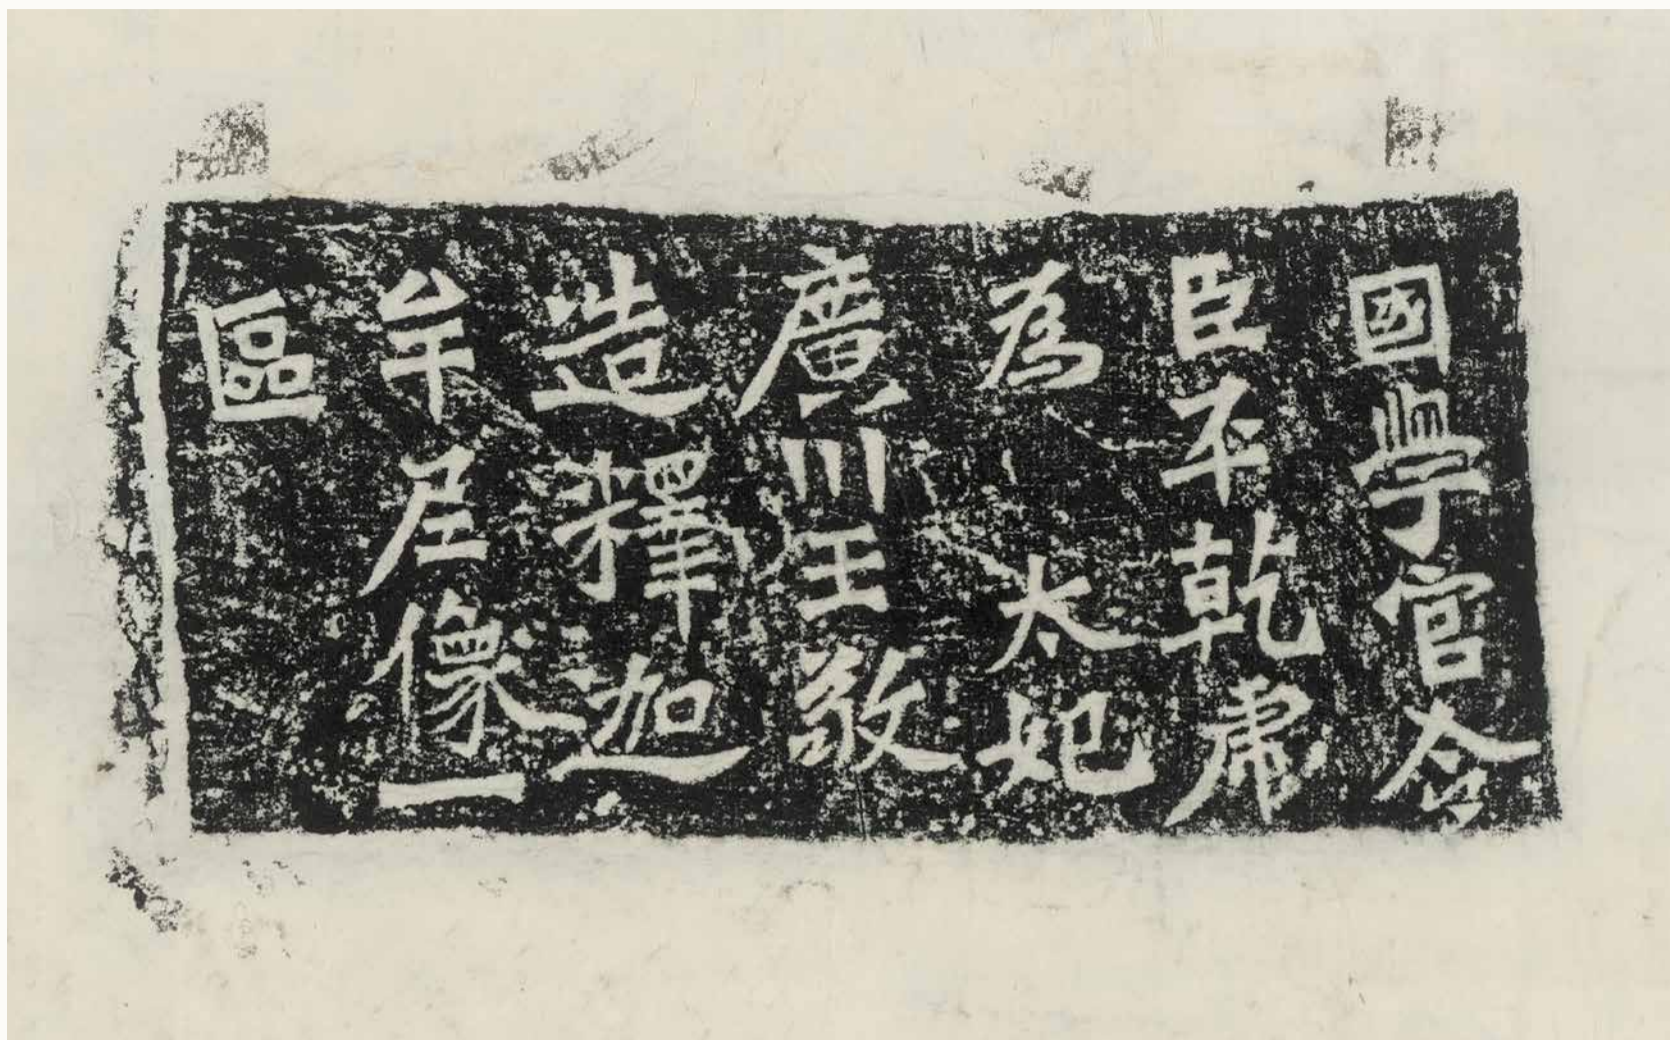 國學官令
臣平乾虎
為 太妃
廣川王敬
造釋迦
牟尼像一
區